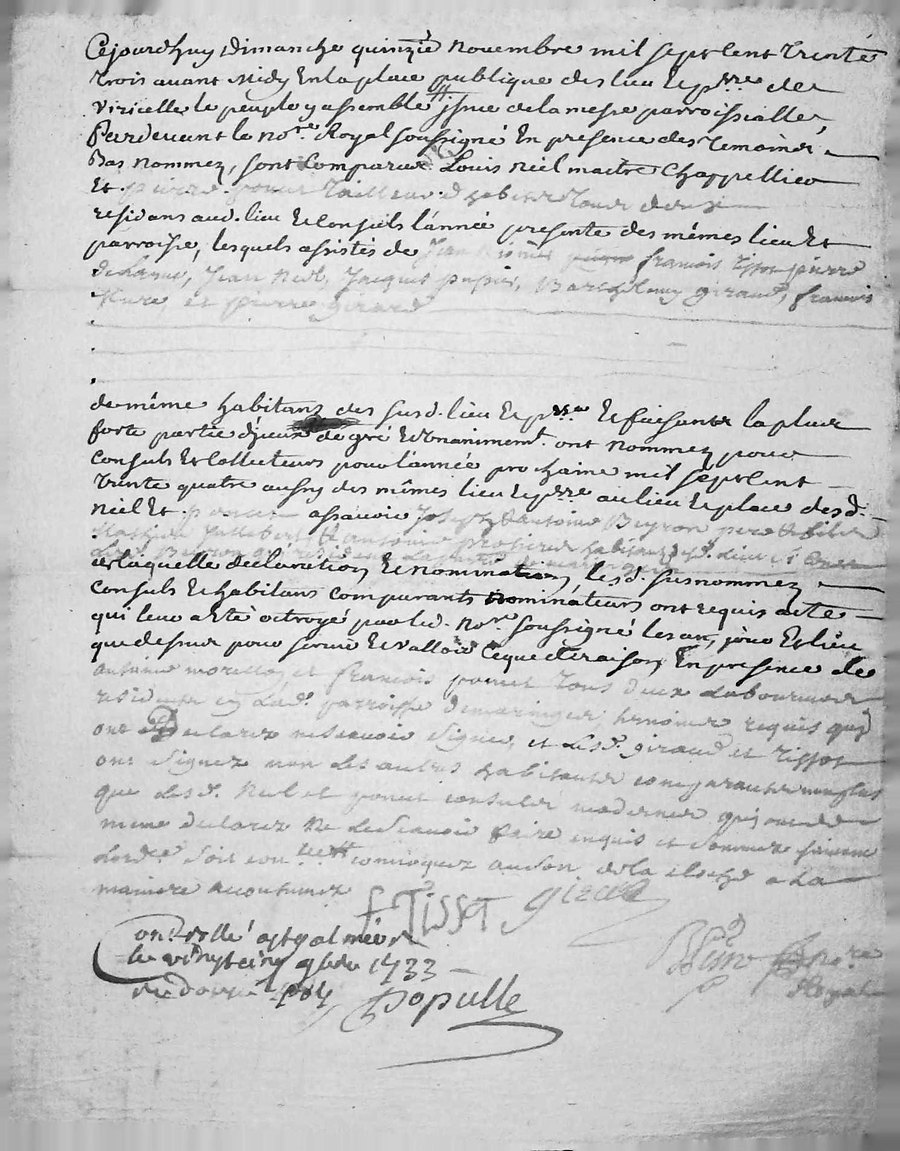 Cejourdhuy dimanche quinzie novembre mil sept cent trente
trois avant midy En la place publique des lieu Et psse de
viricelle le peuple y assemble jssue de la messe parroissialle,
Pardevant le nore Royal soussigné En presence des temoins
Bas nommez, sont Comparus Louis niel maitre Chappellier
Et pierre poncet tailleur d'habits tous deux
residans aud. lieu Et consuls l'année presente des mêmes lieu Et
parroisse, lesquels assistés de Jean francois tissot pierre
Jean niel, Jacques pupier, Barthelemy giraud, francois
et pierre girard
de même habitans des susd. lieu Et psse Et faisants la plus
forte partie d'jceux de gré Et Unanimemt. ont nommez pour
consuls Et Collecteurs pour l'année prochaine mil sept cent
trente quatre aussy des mêmes lieu Et psse au lieu Et place des d.
niel Et poncet assavoir Joseph & antoine Beyron pere & fils
Mathieu & antoine habitans d. lieu et
de laquelle declaration Et nomination, les d. susnommez
consuls Et habitans comparants nominateurs ont requis acte
qui leur a Eté octroyé par led. nore. soussigné les an, jour Et lieu
que dessus pour servir Et valloir Ceque de raison, En presence de
antoine et francois poncet tous deux Laboureurs
residents en lad. parroisse de maringes, temoins requis quj
ont declarez ne scavoir signer, et les d. giraud et tissot
ont signez non les autres habitants comparants non plus
que les d. niel et poncet consuls modernes quj ont de
meme declarez ne le scavoir faire enquis et sommez suivant
Lordce soit convoquez au son de la cloche a la
maniere accoutumez
f Tissot giraud
Controllé a st galmier
le vingt cinq 9bre 1733
Populle
nore
Royal